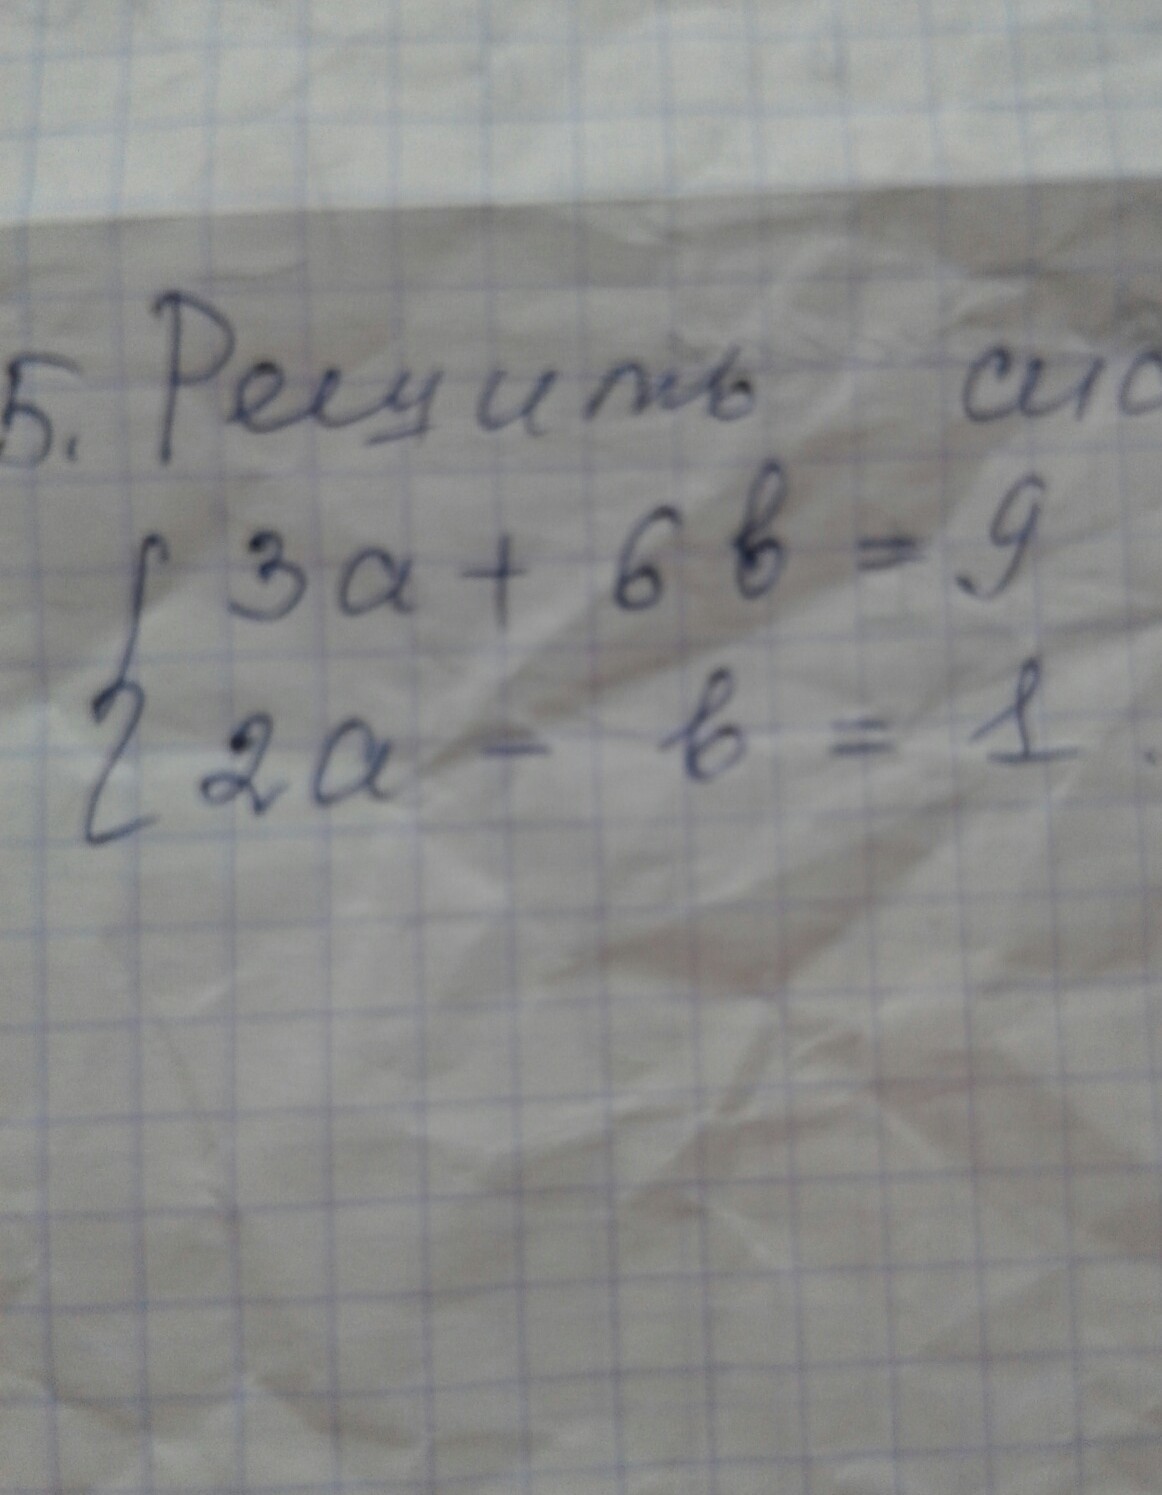 5. Решить сис
3a + 6b = 9
2a - b = 1.